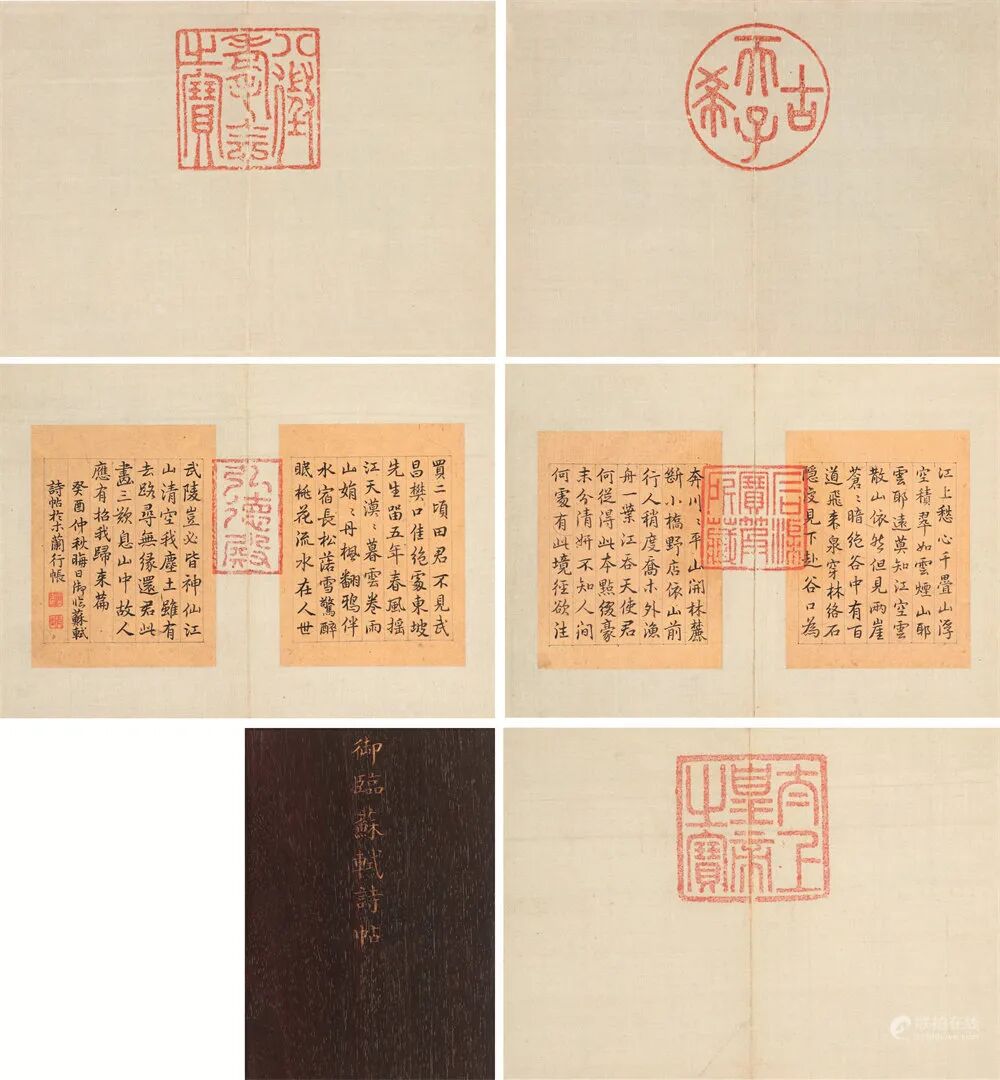 古希天子
八徵
耄念
之寶
江上愁心千疊山浮
空積翠如雲煙山耶
雲耶遠莫知江空雲
散山依然但見兩崖
蒼〻暗絕谷中有百
道飛來泉穿林絡石
隱復見下赴谷口為
石渠
寶笈
所藏
奔川〻平山開林麓
斷小橋野店依山前
行人稍度喬木外漁
舟一葉江吞天使君
何從得此本點綴豪
末分清妍不知人間
何處有此境徑欲往
買二頃田君不見武
昌樊口佳絕處東坡
先生留五年春風搖
江天漠〻暮雲卷雨
山娟〻丹楓翻鴉伴
水宿長松落雪驚醉
眠桃花流水在人世
弘德殿
武陵豈必皆神仙江
山清空我塵土雖有
去路尋無緣還君此
畫三歎息山中故人
應有招我歸來篇
癸酉仲秋晦日御臨蘇軾
詩帖於木蘭行帳
太上
皇帝
之寶
御臨蘇軾詩帖
联拍在线